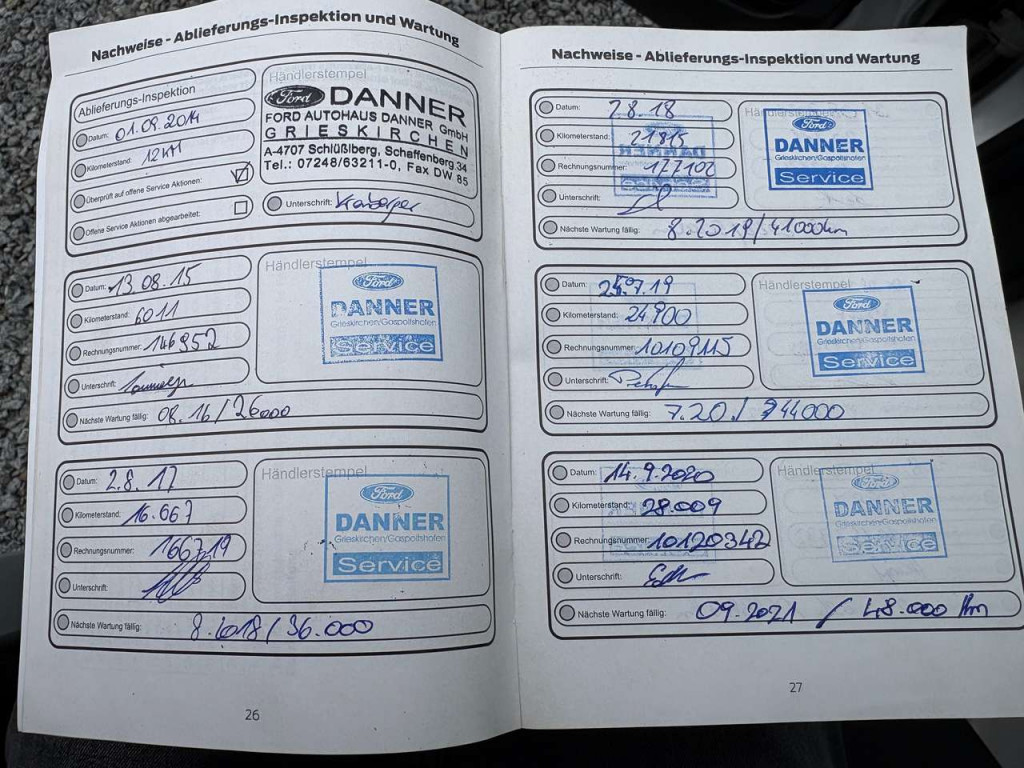 Nachweise - Ablieferungs-Inspektion und Wartung
Ablieferungs-Inspektion
Datum: 01.09.2014
Kilometerstand: 12 KM
Überprüft auf offene Service Aktionen:
Offene Service Aktionen abgearbeitet:
Händlerstempel
Ford DANNER
FORD AUTOHAUS DANNER GmbH
GRIESKIRCHEN
A-4707 Schlüßlberg, Schaffenberg 34
Tel.: 07248/63211-0, Fax DW 85
Unterschrift:
Datum: 13.08.15
Kilometerstand: 6011
Rechnungsnummer: 146952
Unterschrift:
Nächste Wartung fällig: 08.16/26000
Händlerstempel
Ford
DANNER
Grieskirchen/Gaspoltshofen
Service
Datum: 2.8.17
Kilometerstand: 16.667
Rechnungsnummer: 166719
Unterschrift:
Nächste Wartung fällig: 8.2018/36.000
Händlerstempel
Ford
DANNER
Grieskirchen/Gaspoltshofen
Service
26
Nachweise - Ablieferungs-Inspektion und Wartung
Datum: 2.8.18
Kilometerstand: 21815
Rechnungsnummer: 177102
Unterschrift:
Nächste Wartung fällig: 8.2019/41000km
Händlerstempel
Ford
DANNER
Grieskirchen/Gaspoltshofen
Service
Datum: 25.7.19
Kilometerstand: 24900
Rechnungsnummer: 10109115
Unterschrift:
Nächste Wartung fällig: 7.20 / 44000
Händlerstempel
Ford
DANNER
Grieskirchen/Gaspoltshofen
Service
Datum: 14.9.2020
Kilometerstand: 28.009
Rechnungsnummer: 10120342
Unterschrift:
Nächste Wartung fällig: 09.2021 / 48.000 km
Händlerstempel
Ford
DANNER
Grieskirchen/Gaspoltshofen
Service
27